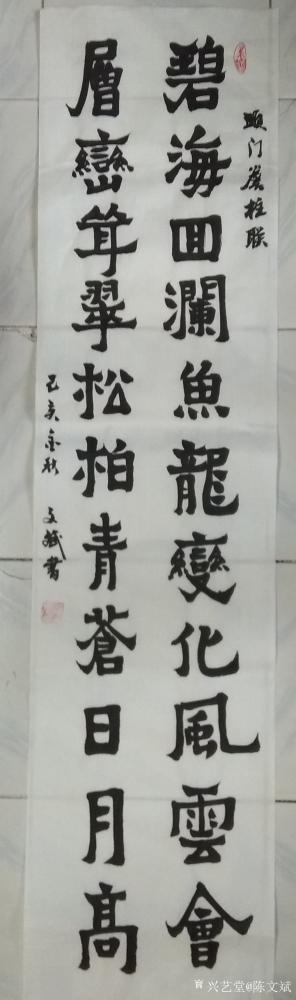 头门檐柱联
碧海回瀾魚龍變化風雲會
層巒耸翠松柏青蒼日月高
己亥金秋 文斌書
兴艺堂@陈文斌